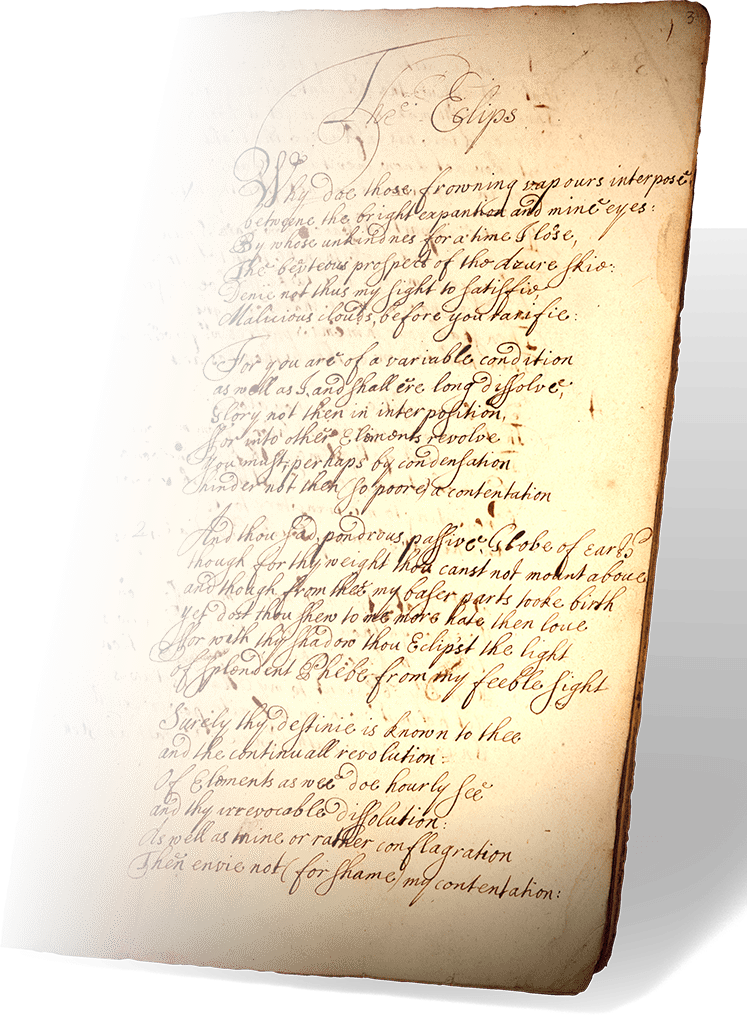 3
The Eclips
Why doe those frowning vapours interpose
betweene the bright expantion and mine eyes:
By whose unkindnes for a time I lose,
The beuteous prospect of the azure skie:
Denie not thus my sight to satisfie,
Malicious clouds, before you rarifie:
For you are of a variable condition
as well as I, and shall ere long dissolve,
Glory not then in interposition,
For into other Elements revolve
You must, perhaps by condensation
hinder not then (so poore) a contentation
2
And thou sad, pondrous, passive Globe of earth
though for thy weight thou canst not mount above
and though from thee my baser parts tooke birth
yet dost thou shew to me more hate then love
For with thy shadow thou Eclip'st the light
of splendent Phebe from my feeble sight
Surely thy destinie is known to thee
and the continuall revolution:
Of Elements as wee doe hourly see
and thy irrevocable dissolution:
As well as mine or rather conflagration
Then envie not (for shame) my contentation: